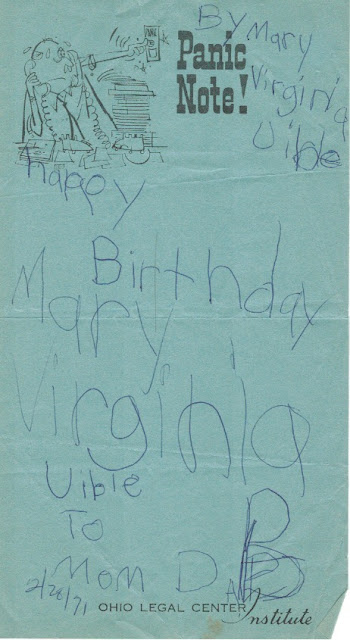 By Mary
Virginia
Uible
Panic
Note!
happy
Birthday
Mary
Virginia
Uible
To
Mom D
OHIO LEGAL CENTER Institute